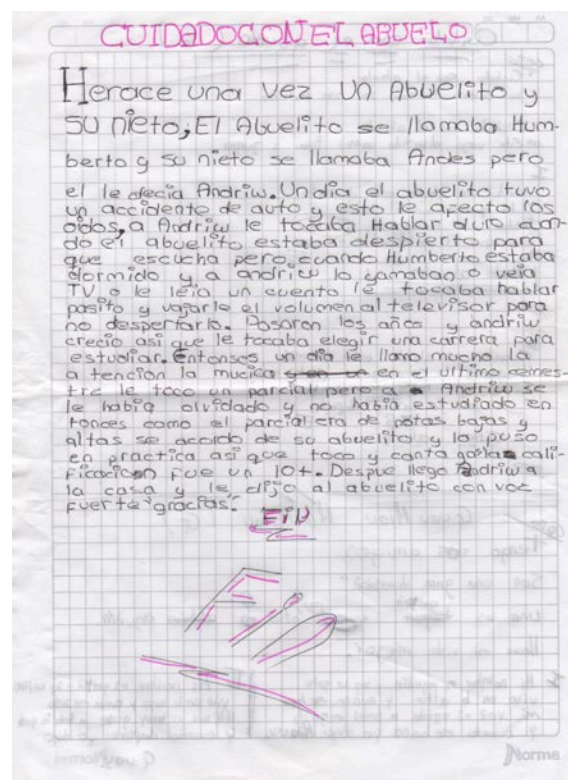 CUIDADO CON EL ABUELO
Herace una vez un Abuelito y
su nieto, El Abuelito se llamaba Hum-
berto y su nieto se llamaba Andes pero
el le decia Andriw. Un dia el abuelito tuvo
un accidente de auto y esto le afecto los
oidos, a Andriw le tocaba Hablar duro cuan-
do el abuelito estaba despierto para
que escucha pero cuando Humberto estaba
dormido y a andriw lo yamaban o veia
TV o le leia un cuento le tocaba hablar
pasito y vajarle el volumen al televisor para
no despertarlo. Pasaron los años y andriw
crecio asi que le tocaba elegir una carrera para
estudiar. Entonses un dia le llamo mucho la
a tencion la mucica en el ultimo cemes-
tre le toco un parcial pero a Andriw se
le habia olvidado y no habia estudiado en
tonces como el parcial era de notas bajas y
altas se acordo de su abuelito y lo puso
en practica asi que toco y canto la cali-
ficacion fue un 10+. Despue llego Andriw a
la casa y le dijo al abuelito con voz
fuerte "gracias."
FIN
FIN
Norma